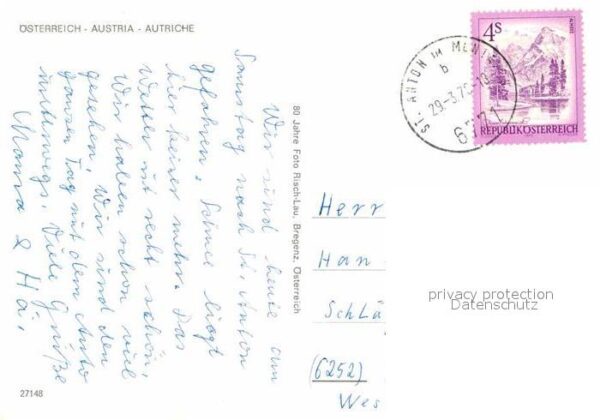 ÖSTERREICH - AUSTRIA - AUTRICHE
Wir sind heute am
Samstag nach St. Anton
gefahren. Schnee liegt
hier keiner mehr. Das
Wetter ist recht schön,
Wir haben schon viel
gesehen. Wir sind den
ganzen Tag mit dem Auto
unterwegs. Viele Grüße
Mama &
27148
80 Jahre Foto Risch-Lau, Bregenz, Österreich
4S
REPUBLIK ÖSTERREICH
ST. ANTON IM
b
29.-3.75-18
6771
Herr
Han
Schlä
(6252)
Wes
privacy protection
Datenschutz